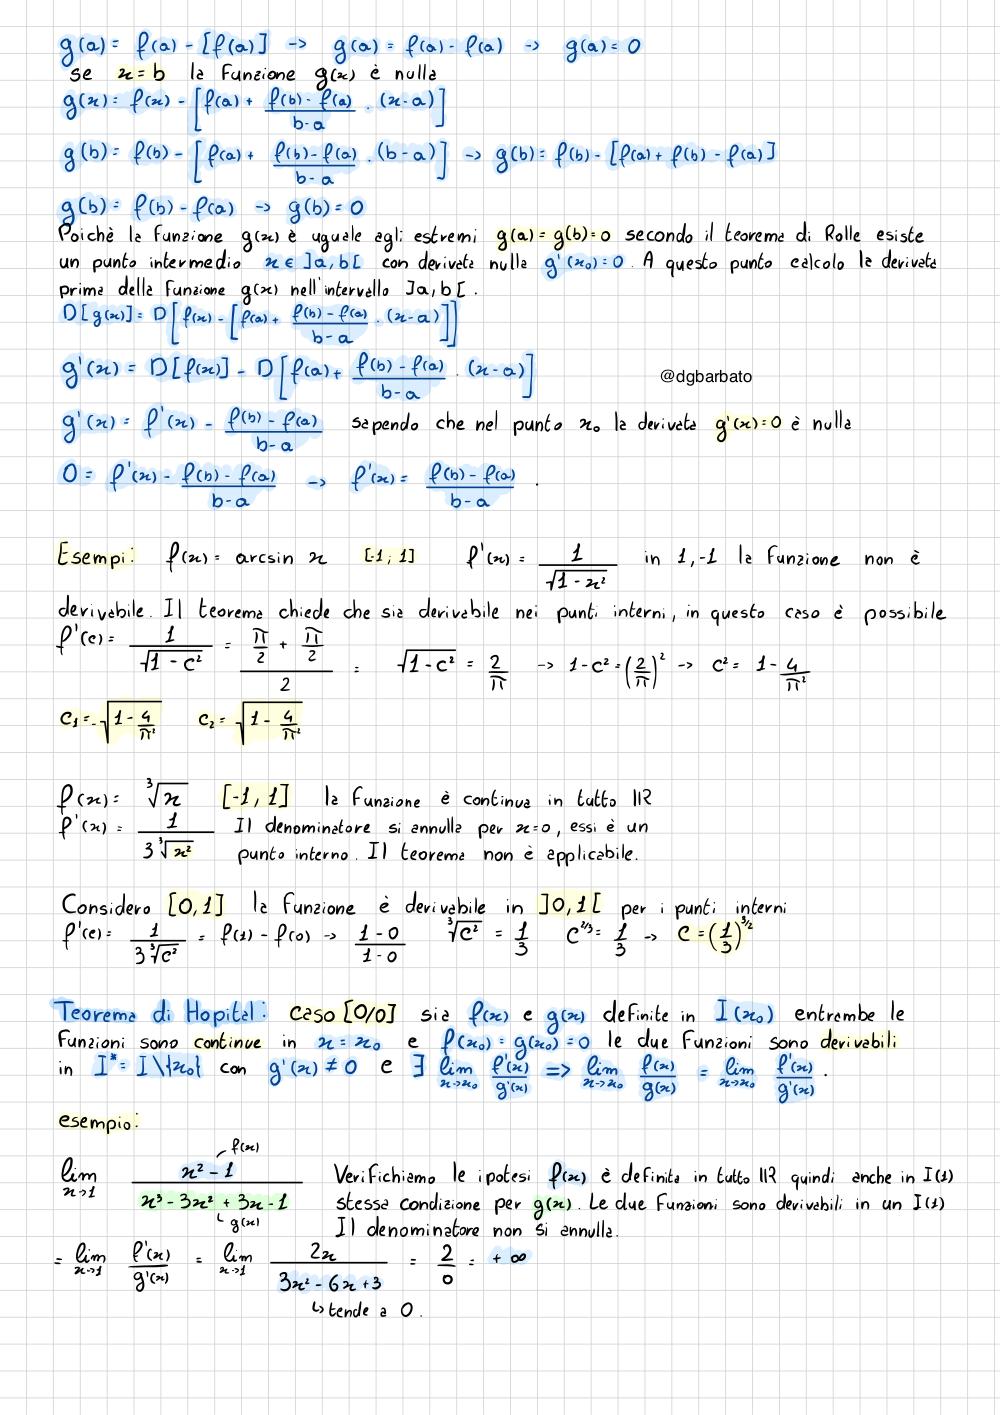 g(a) = f(a) - [f(a)] -> g(a) = f(a) - f(a) -> g(a) = 0
se x = b la funzione g(x) è nulla
g(x) = f(x) - [f(a) + (f(b) - f(a))/(b-a) · (x-a)]
g(b) = f(b) - [f(a) + (f(b) - f(a))/(b-a) · (b-a)] -> g(b) = f(b) - [f(a) + f(b) - f(a)]
g(b) = f(b) - f(a) -> g(b) = 0
Poichè la funzione g(x) è uguale agli estremi g(a) = g(b) = 0 secondo il teorema di Rolle esiste
un punto intermedio x ∈ ]a,b[ con derivata nulla g'(x₀) = 0. A questo punto calcolo la derivata
prima della funzione g(x) nell'intervallo ]a,b[.
D[g(x)] = D[f(x) - [f(a) + (f(b) - f(a))/(b-a) · (x-a)]]
g'(x) = D[f(x)] - D[f(a) + (f(b) - f(a))/(b-a) · (x-a)]
@dgbarbato
g'(x) = f'(x) - (f(b) - f(a))/(b-a) sapendo che nel punto x₀ la derivata g'(x) = 0 è nulla
0 = f'(x) - (f(b) - f(a))/(b-a) -> f'(x) = (f(b) - f(a))/(b-a) .
Esempi: f(x) = arcsin x [-1; 1] f'(x) = 1/√(1-x²) in 1,-1 la funzione non è
derivabile. Il teorema chiede che sia derivabile nei punti interni, in questo caso è possibile
f'(c) = 1/√(1-c²) = (π/2 + π/2)/2 = √(1-c²) = 2/π -> 1-c² = (2/π)² -> c² = 1 - 4/π²
c₁ = -√(1 - 4/π²) c₂ = √(1 - 4/π²)
f(x) = ³√x [-1, 1] la funzione è continua in tutto IR
f'(x) = 1/(3 ³√x²) Il denominatore si annulla per x=0, essi è un
punto interno. Il teorema non è applicabile.
Considero [0,1] la funzione è derivabile in ]0,1[ per i punti interni
f'(c) = 1/(3 ³√c²) = f(1) - f(0) -> (1-0)/(1-0) ³√c² = 1/3 c^(2/3) = 1/3 -> c = (1/3)^(3/2)
Teorema di Hopital: caso [0/0] sia f(x) e g(x) definite in I(x₀) entrambe le
funzioni sono continue in x = x₀ e f(x₀) = g(x₀) = 0 le due funzioni sono derivabili
in I* = I\{x₀} con g'(x) ≠ 0 e ∃ lim x->x₀ f'(x)/g'(x) => lim x->x₀ f(x)/g(x) = lim x->x₀ f'(x)/g'(x) .
esempio:
lim x->1 (x² - 1)/(x³ - 3x² + 3x - 1) f(x) g(x)
Verifichiamo le ipotesi f(x) è definita in tutto IR quindi anche in I(1)
stessa condizione per g(x). Le due funzioni sono derivabili in un I(1)
Il denominatore non si annulla.
= lim x->1 f'(x)/g'(x) = lim x->1 2x/(3x² - 6x + 3) = 2/0 = +∞
↳ tende a 0.